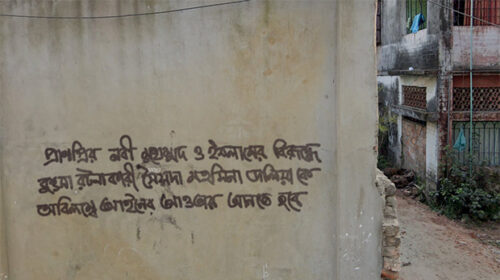 প্রাণপ্রিয় নবী মুহাম্মদ ও ইসলামের বিরুদ্ধে
কুৎসা রটনাকারী সৈয়দা তাসলিয়া কে
অবিলম্বে আইনের আওতায় আনতে হবে